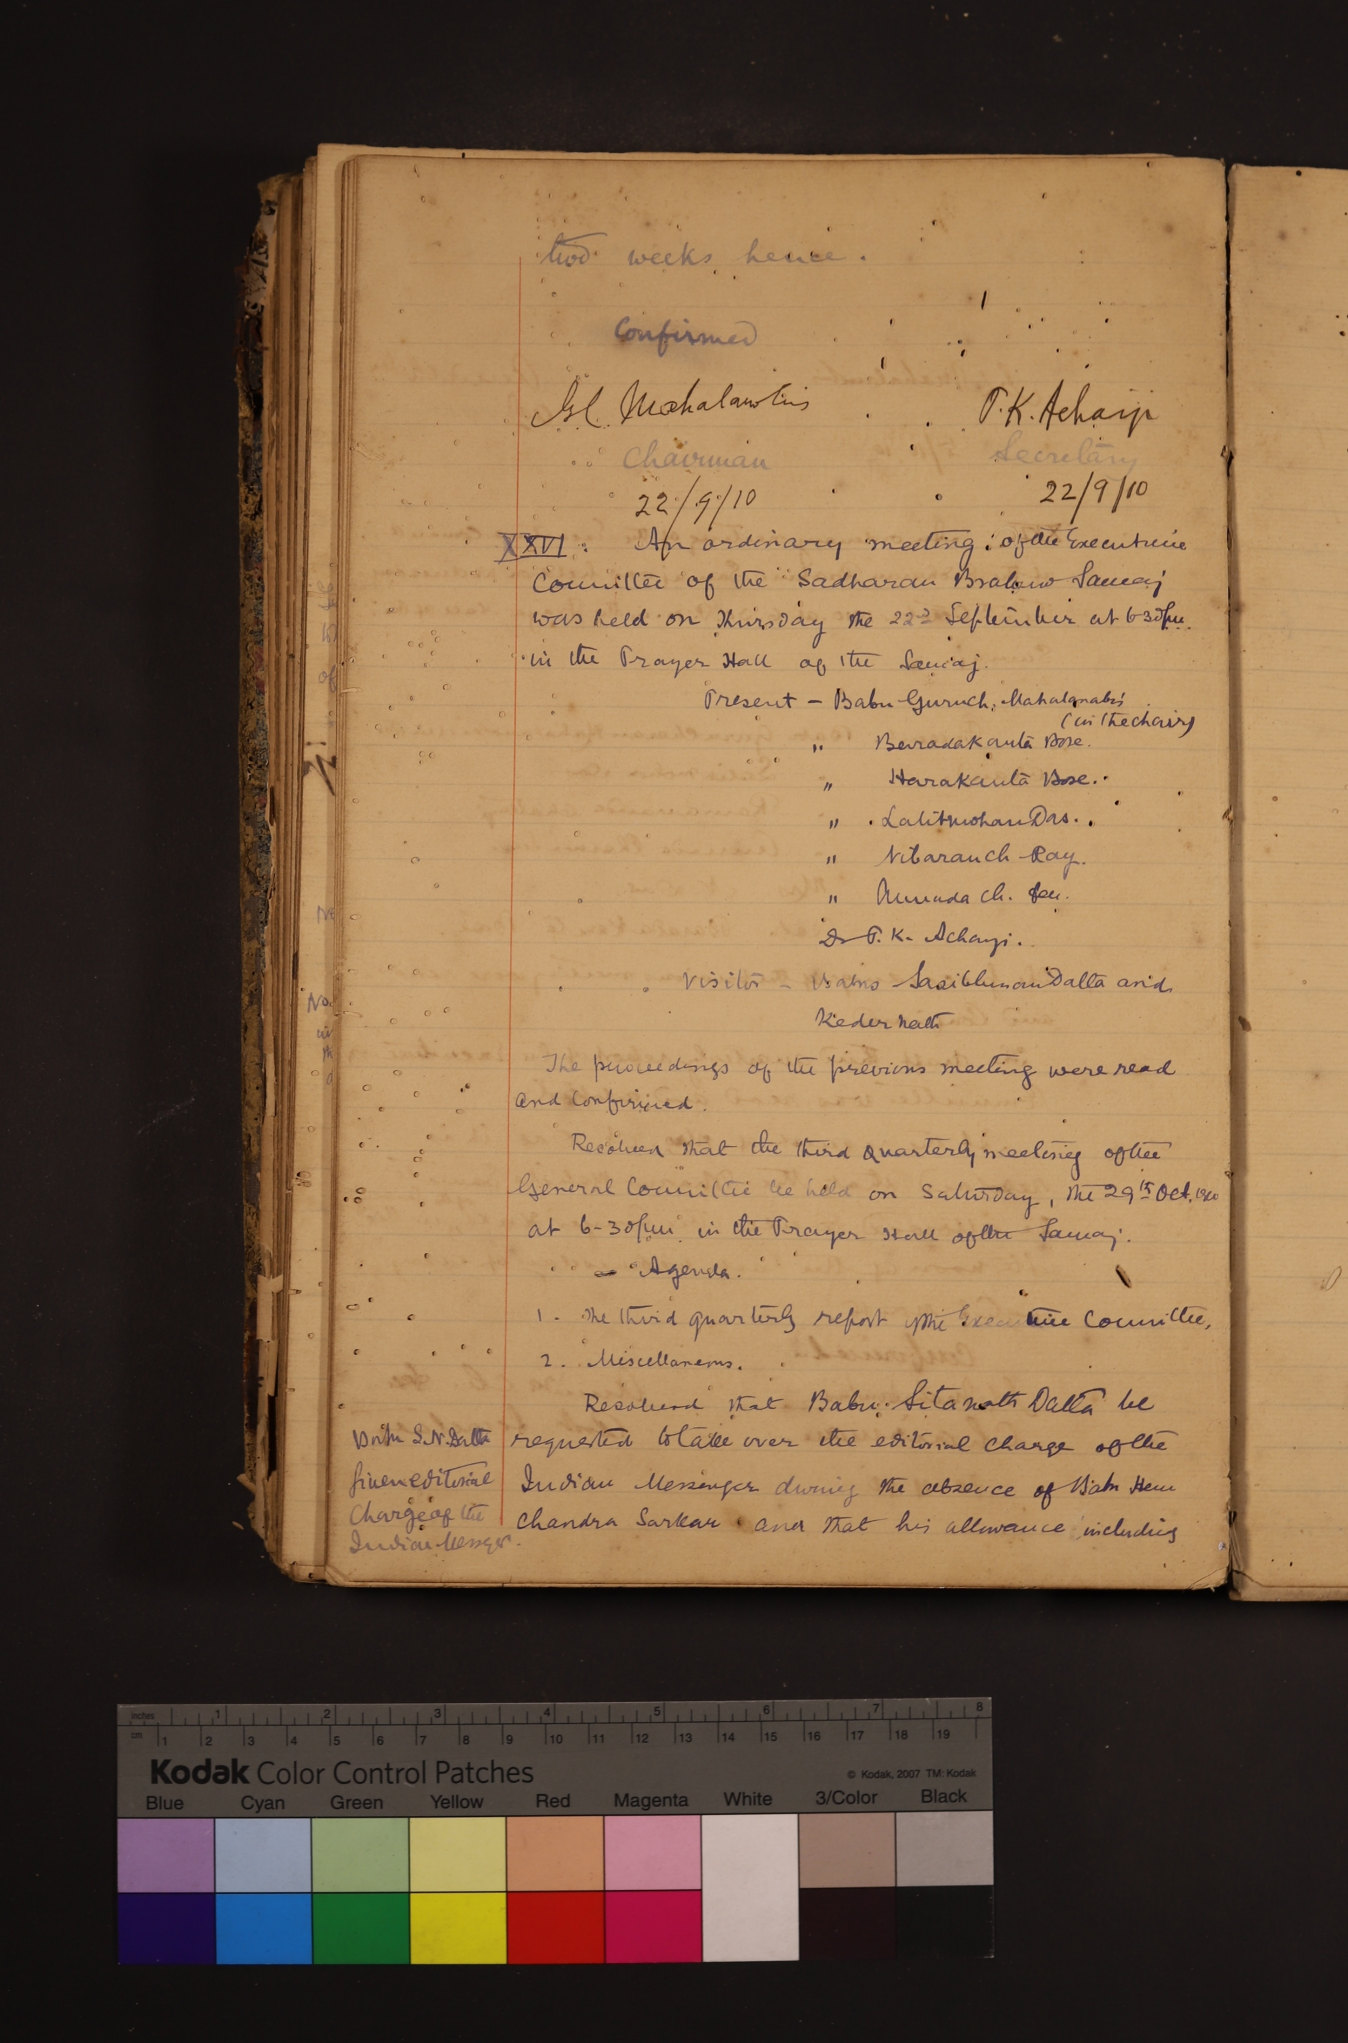 two weeks hence.
Confirmed
G C Mahalanobis P. K. Acharji
Chairman Secretary
22/9/10 22/9/10
XXVI. An ordinary meeting of the Executive
Committee of the Sadharan Brahmo Samaj
was held on Thursday the 22d September at 6-30 pm.
in the Prayer Hall of the Samaj.
Present - Babu Guruch. Mahalanabis
(in the chair)
" Baradakanta Bose.
" Harakanta Bose.
" Lalitmohan Das.
" Nibaran Ch Ray.
" Annada Ch. Sen.
Dr P. K. Acharji.
Visitor - Babus Sasibhusan Datta and
Kedernath
The proceedings of the previous meeting were read
and confirmed.
Resolved that the third quarterly meeting of the
General Committee be held on Saturday, the 29th Oct. 1910
at 6-30 pm in the Prayer Hall of the Samaj.
Agenda.
1. The third quarterly report of the Executive Committee.
2. Miscellaneous.
Resolved that Babu Sitanath Datta be
requested to take over the editorial charge of the
Indian Messenger during the absence of Babu Hem
Chandra Sarkar and that his allowance including
Babu S. N. Datta
given editorial
Charge of the
Indian Messenger.
inches 1 2 3 4 5 6 7 8
cm 1 2 3 4 5 6 7 8 9 10 11 12 13 14 15 16 17 18 19
Kodak Color Control Patches
© Kodak, 2007 TM: Kodak
Blue Cyan Green Yellow Red Magenta White 3/Color Black